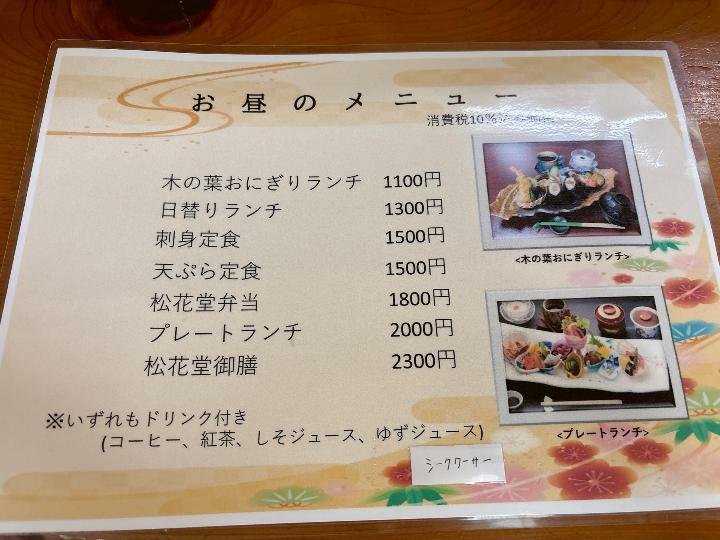 お昼のメニュー
消費税10%
木の葉おにぎりランチ 1100円
日替りランチ 1300円
刺身定食 1500円
天ぷら定食 1500円
松花堂弁当 1800円
プレートランチ 2000円
松花堂御膳 2300円
<木の葉おにぎりランチ>
<プレートランチ>
※いずれもドリンク付き
(コーヒー、紅茶、しそジュース、ゆずジュース)
シークワーサー